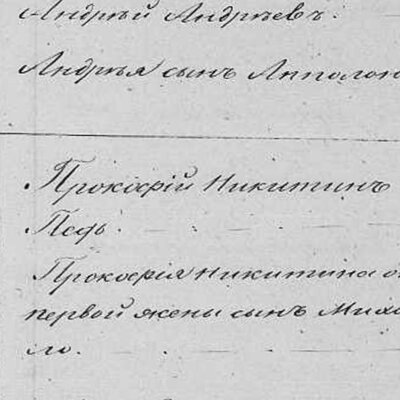 Андрѣй Андрѣевъ.
Андрѣя сынъ Апполон
Прокофій Никитинъ
Педь.
Прокофія Никитина о
первой жены сынъ Миха
ло.